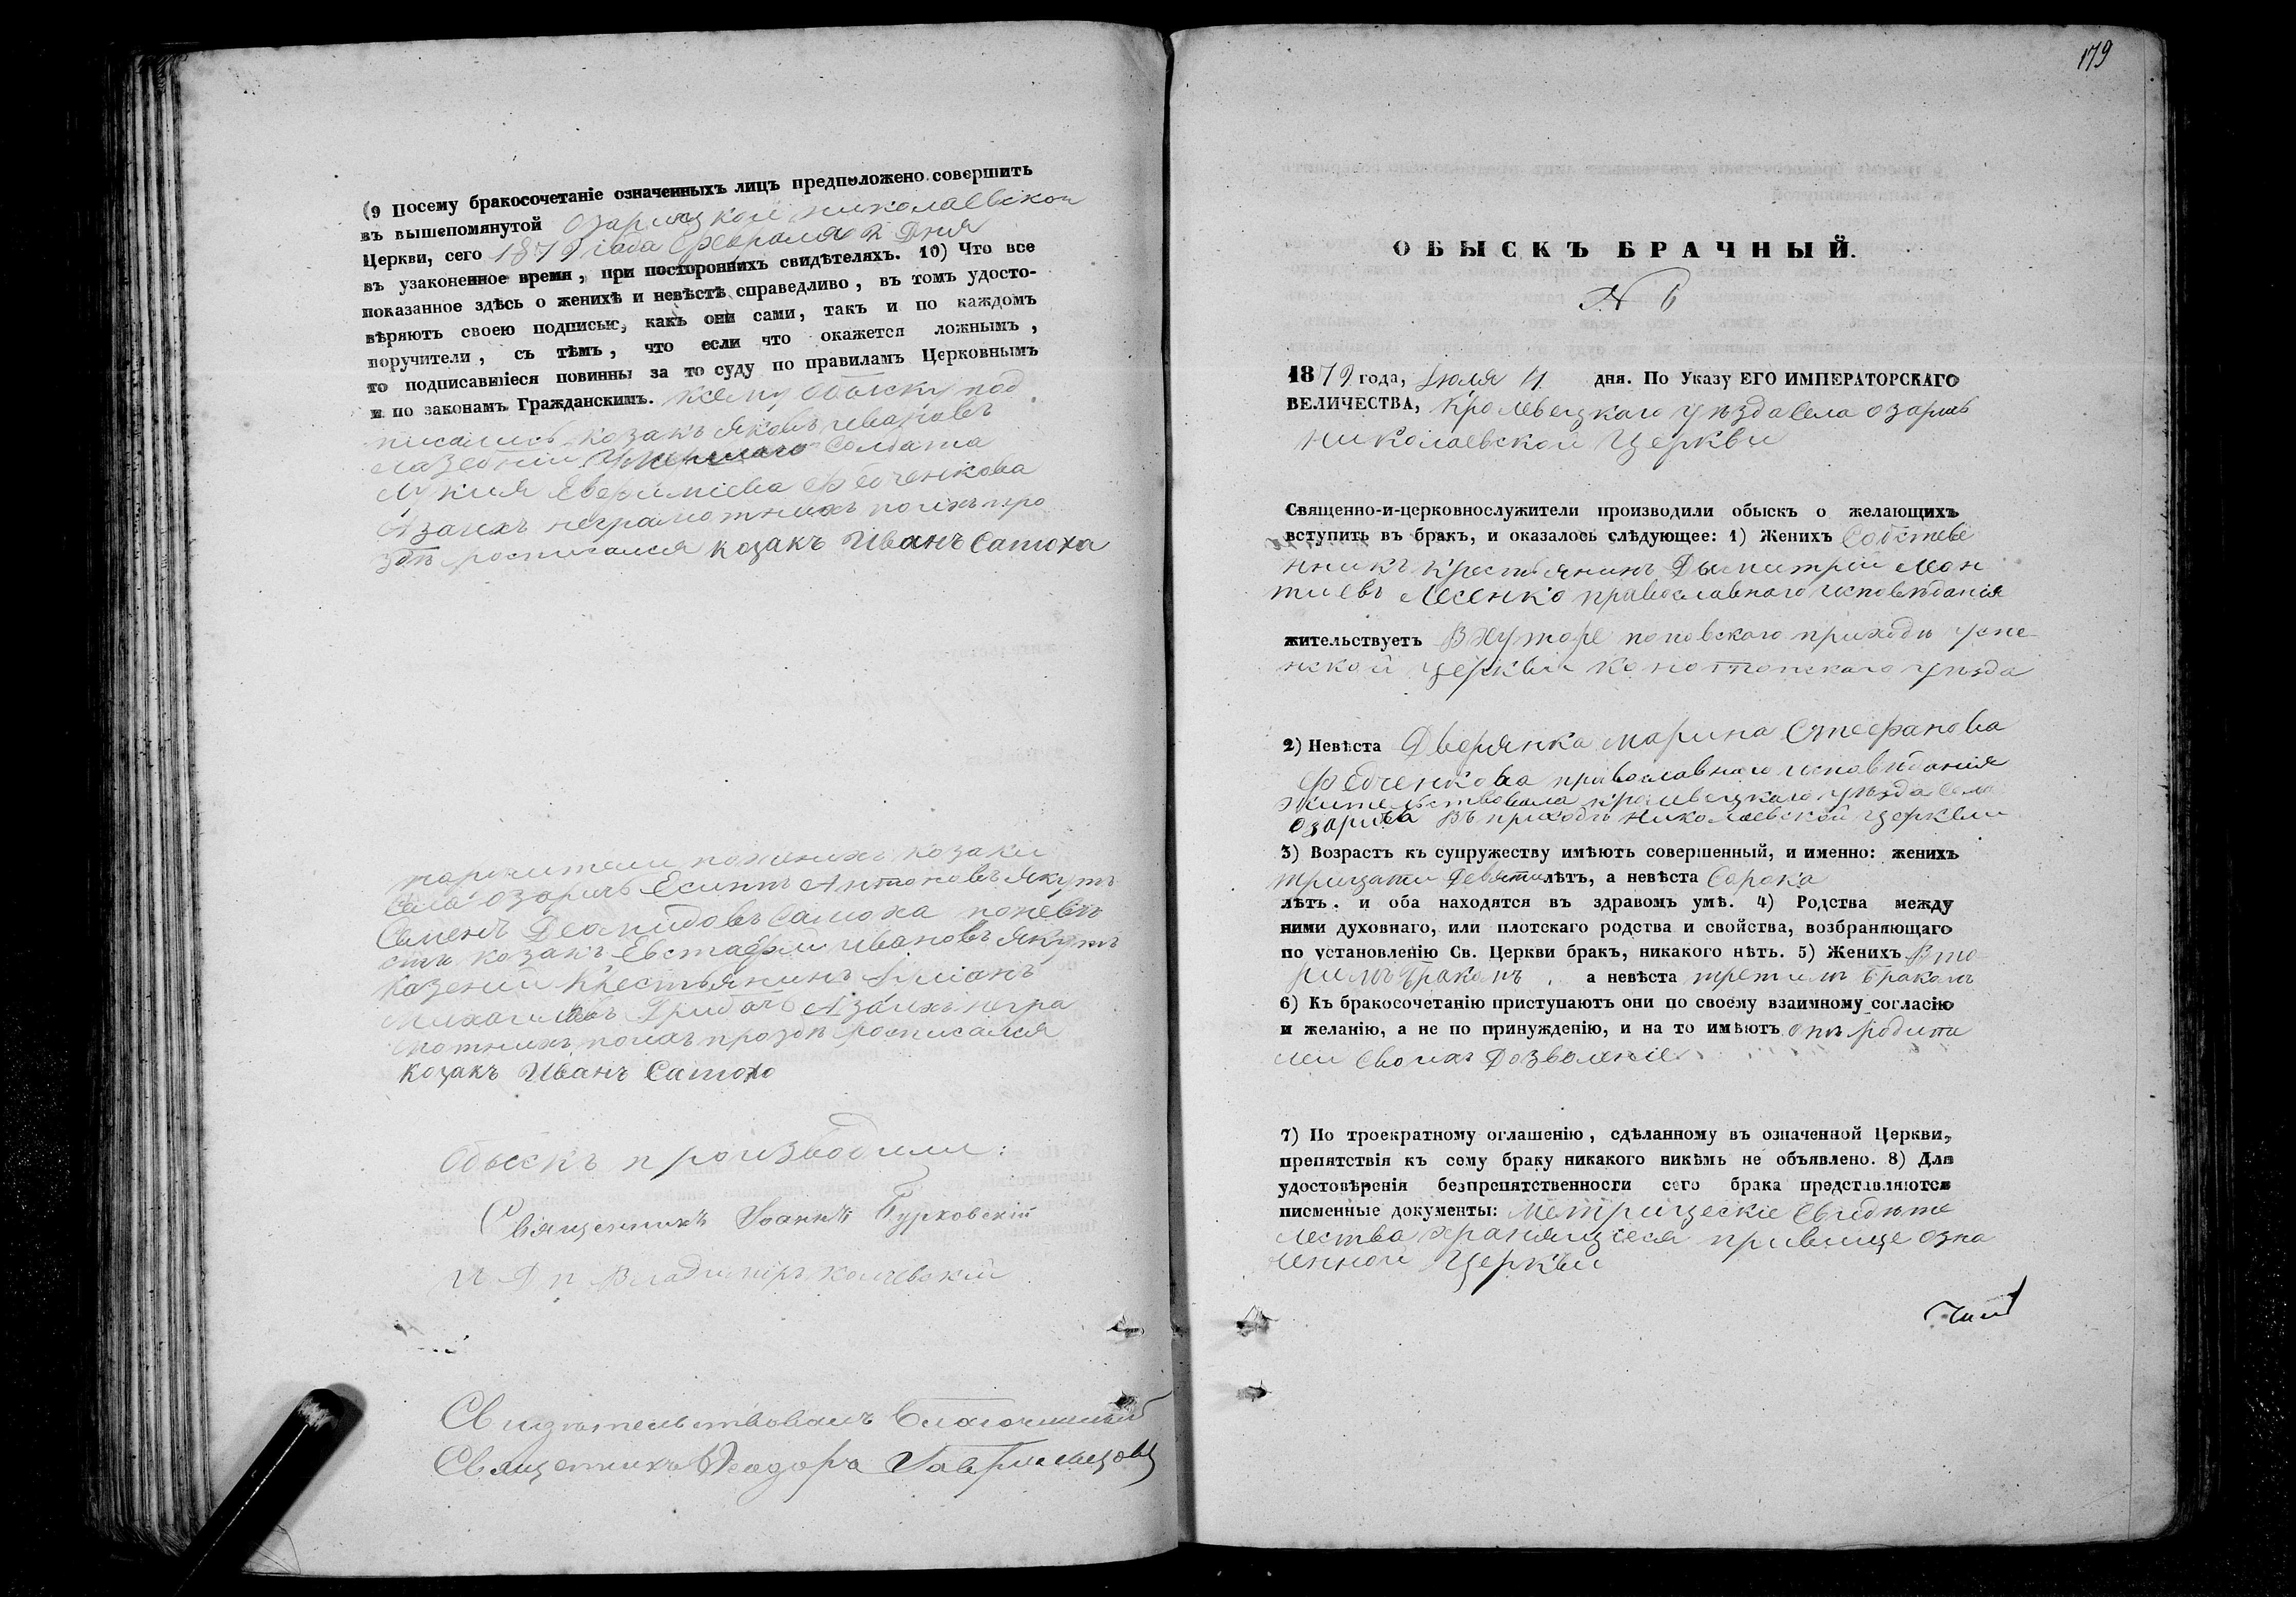 (9 Посему бракосочетаніе означенныхъ лицъ предположено совершить
въ вышепомянутой Озарицкой Николаевской
Церкви, сего 1879 года Февраля 2 дня
въ узаконенное время, при постороннихъ свидѣтеляхъ. 10) Что все
показанное здѣсь о женихѣ и невѣстѣ справедливо, въ томъ удосто-
вѣряютъ своею подписью, какъ они сами, такъ и по каждомъ
поручители, съ тѣмъ, что если что окажется ложнымъ,
то подписавшіеся повинны за то суду по правиламъ Церковнымъ
и по законамъ Гражданскимъ. Ксему обыску под
писались козакъ Яковъ Ивановъ
Лазебній Умершаго Солдата
Евфиміева Федченкова
А заихъ неграмотнихъ поихъ про
збѣ росписался козакъ Иванъ Самоха
поручители поженихѣ козаки
Села Озаричъ Есипъ Антоновъ Якутъ
Семенъ Самоха поневѣ
стѣ козакъ Евстафій Ивановъ Якутъ
Казений Крестьянинъ
Михайловъ Грибачъ А заихъ негра
мотнихъ поихъ прозбѣ росписался
козакъ Иванъ Самохо
Обыскъ производили:
Священникъ Іоаннъ Бурковскій
И Д п Владиміръ
Свидѣтельствовалъ Благочинный
Священникъ Феодоръ
179
ОБЫСКЪ БРАЧНЫЙ.
N 6
1879 года, Іюля 4 дня. По Указу ЕГО ИМПЕРАТОРСКАГО
ВЕЛИЧЕСТВА, Кролевецкаго уѣзда Села Озаричъ
Николаевской Церкви
Священно-и-церковнослужители производили обыскъ о желающихъ
вступить въ бракъ, и оказалось слѣдующее: 1) Женихъ Собстве
нникъ Крестьянинъ Дымитрій Леон
тиевъ Лесенко православнаго исповѣданія
жительствуетъ В хуторе поповского прихода Успе
нской церкви Конотопскаго уѣзда
2) Невѣста Дворянка Марина Стефанова
Федченкова православнаго исповѣданія
жительствовала Кролевецкаго уѣзда Села
Озарича Въ приходѣ Николаевской церкви
3) Возрастъ къ супружеству имѣютъ совершенный, и именно: женихъ
тридцати девяти лѣтъ, а невѣста Сорока
лѣтъ. и оба находятся въ здравомъ умѣ. 4) Родства между
ними духовнаго, или плотскаго родства и свойства, возбраняющаго
по установленію Св. Церкви бракъ, никакого нѣтъ. 5) Женихъ Вто
римъ бракомъ, а невѣста третимъ бракомъ
6) Къ бракосочетанію приступаютъ они по своему взаимному согласію
и желанію, а не по принужденію, и на то имѣютъ отъ родите
лей своихъ дозволеніе
7) По троекратному оглашенію, сдѣланному въ означенной Церкви,
препятствія къ сему браку никакого никѣмъ не объявлено. 8) Для
удостовѣренія безпрепятственности сего брака представляются
писменные документы: Метрическіе Свидѣте
лства хранящіеся привише озна
ченной Церкви